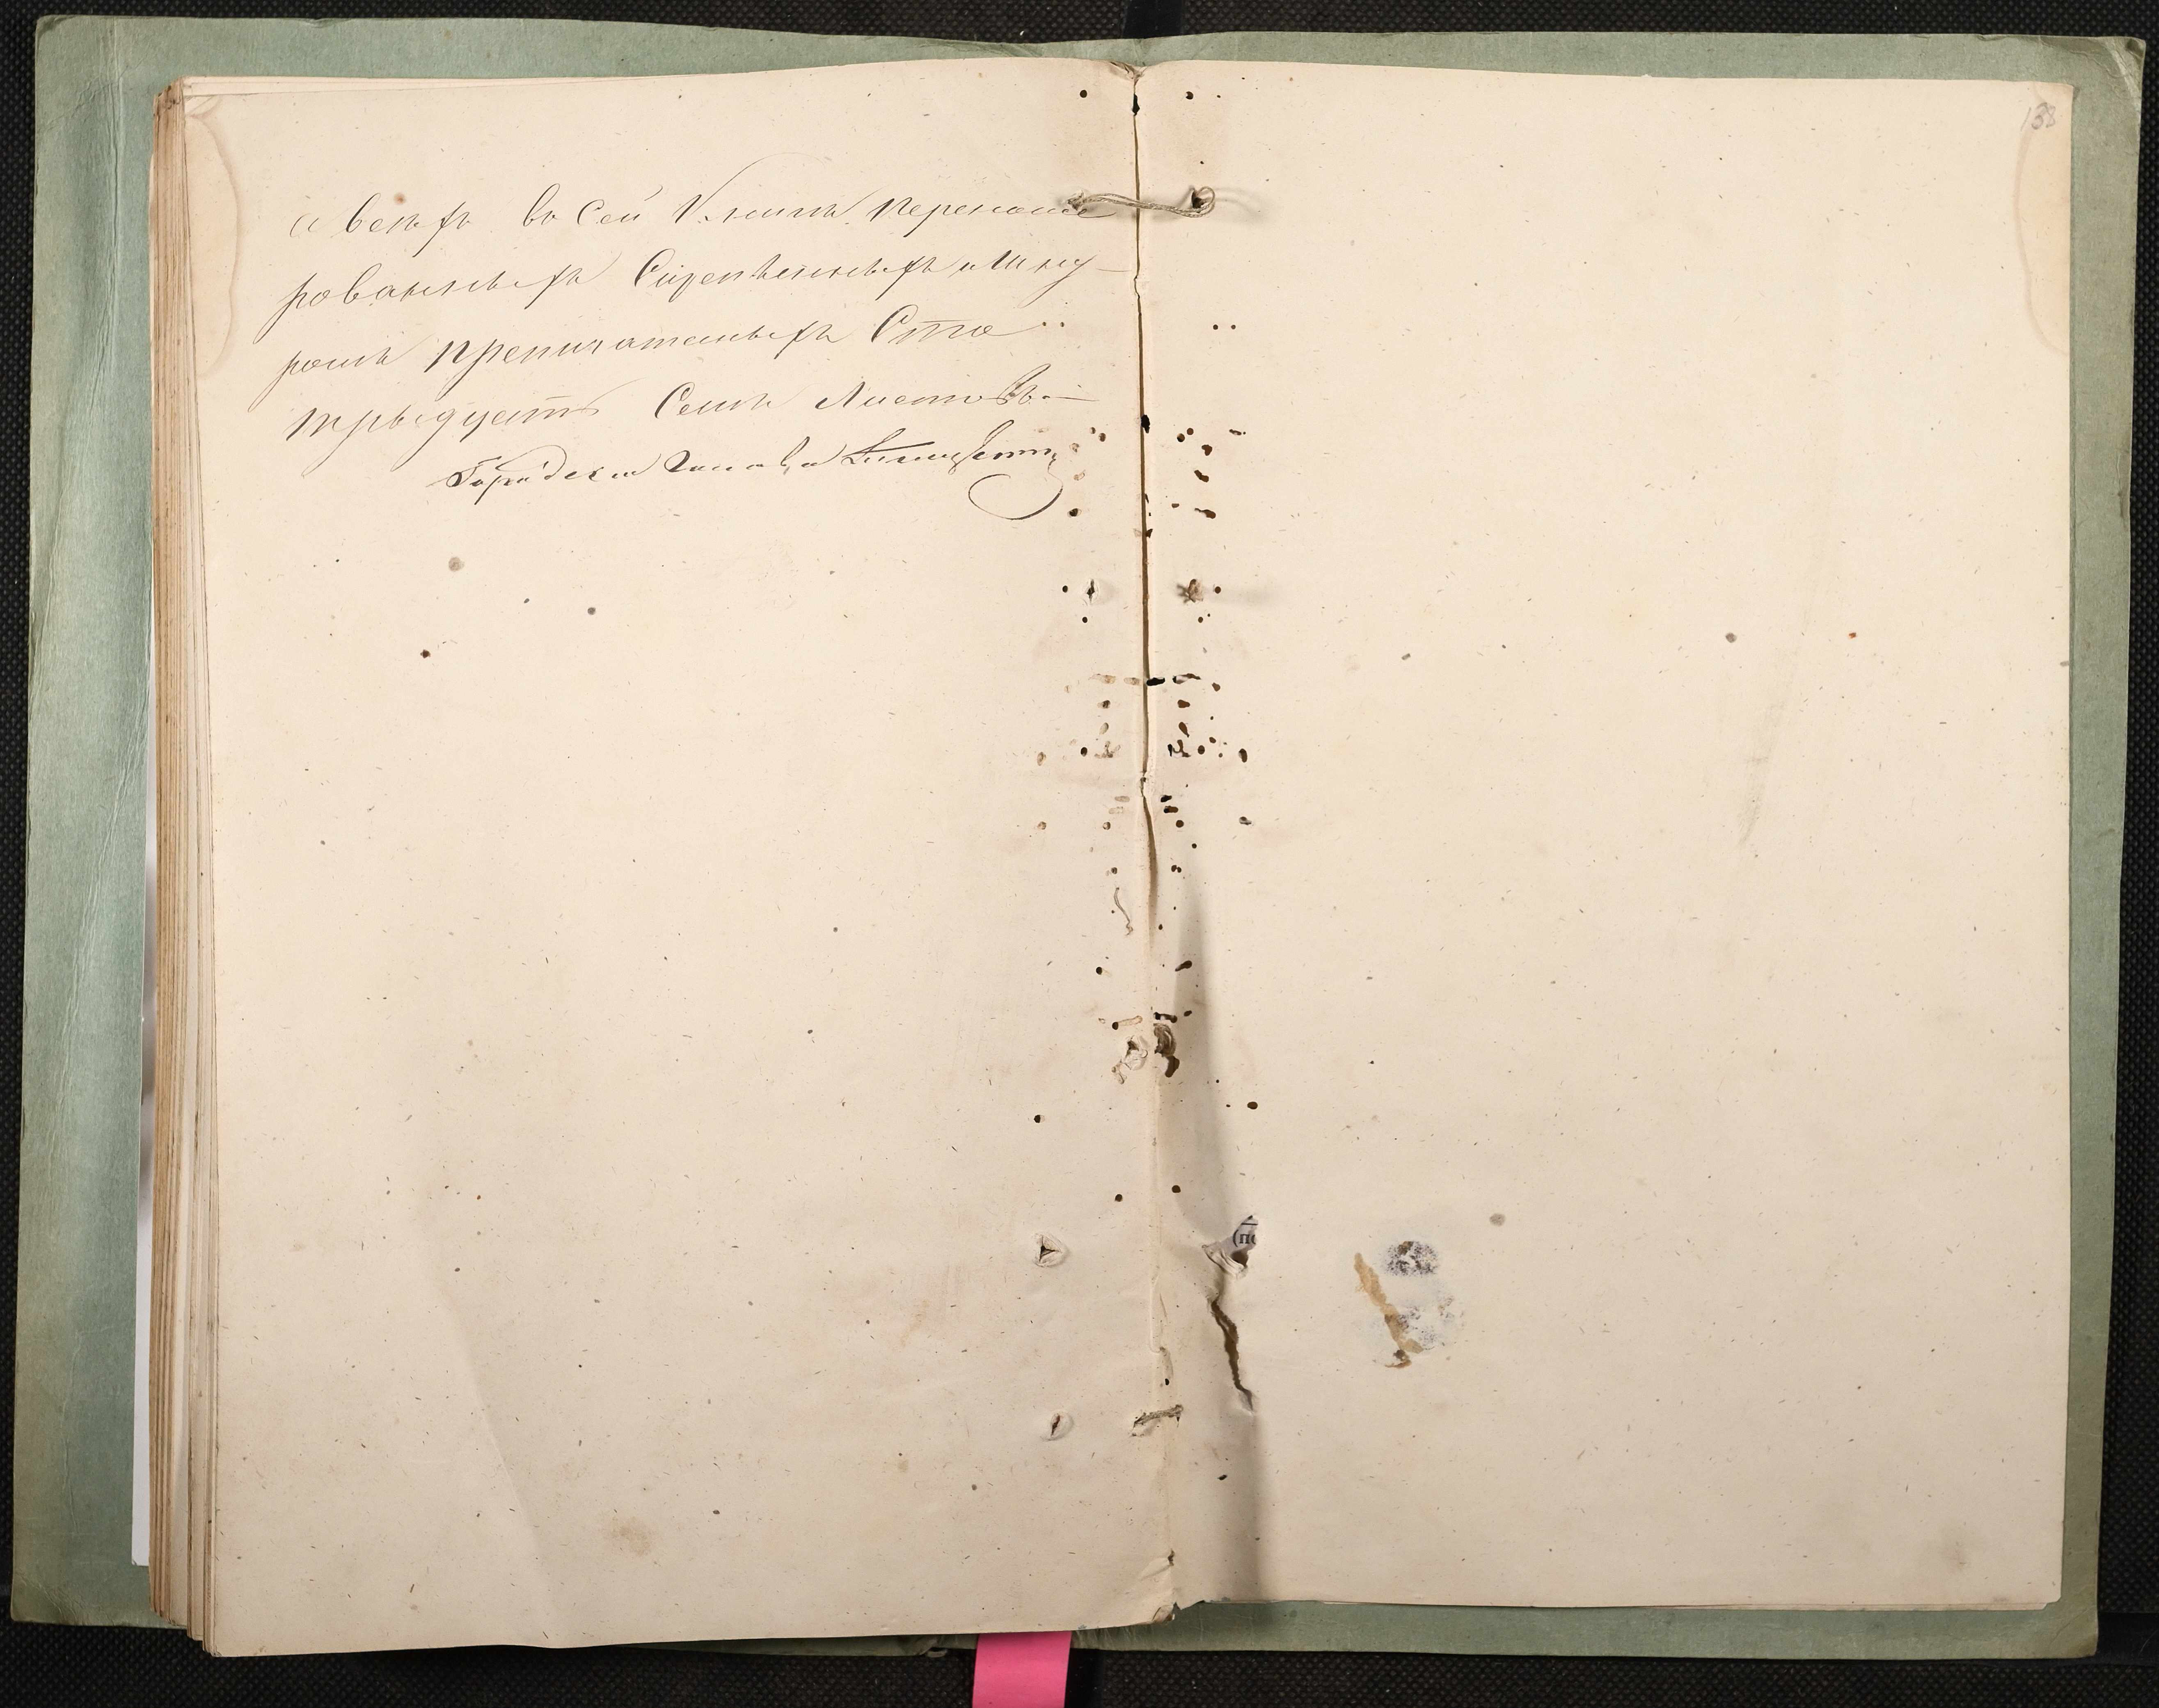 и всехъ въ сей Книге перенуме
рованныхъ Скрепленныхъ и Шну
ромъ припечатанныхъ Сто
тридцать Семь Листовъ.—
Городской Голова
138
(по